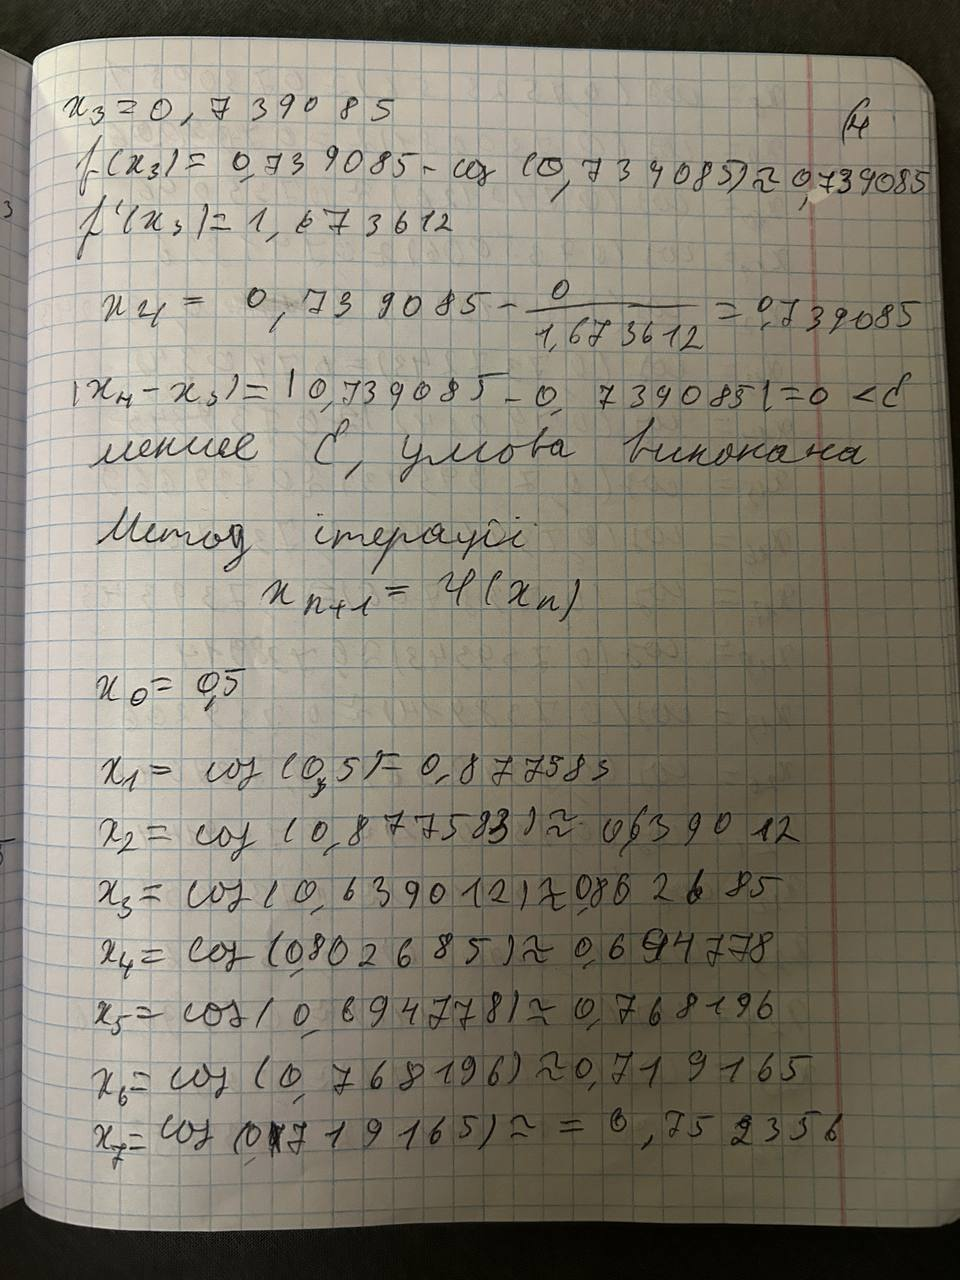 x₃ = 0,739085
f(x₃) = 0,739085 - cos (0,734085) ≈ 0,739085
f'(x₃) = 1,673612
x₄ = 0,739085 - 0/1,673612 = 0,739085
|x₄ - x₃| = |0,739085 - 0,739085| = 0 < ℰ
менше ℰ, умова виконана
Метод ітерації
xₙ₊₁ = φ(xₙ)
x₀ = 0,5
x₁ = cos (0,5) = 0,877583
x₂ = cos (0,877583) ≈ 0,639012
x₃ = cos (0,639012) ≈ 0,802685
x₄ = cos (0,802685) ≈ 0,694778
x₅ = cos (0,694778) ≈ 0,768196
x₆ = cos (0,768196) ≈ 0,719165
x₇ = cos (0,719165) ≈ = 0,752356